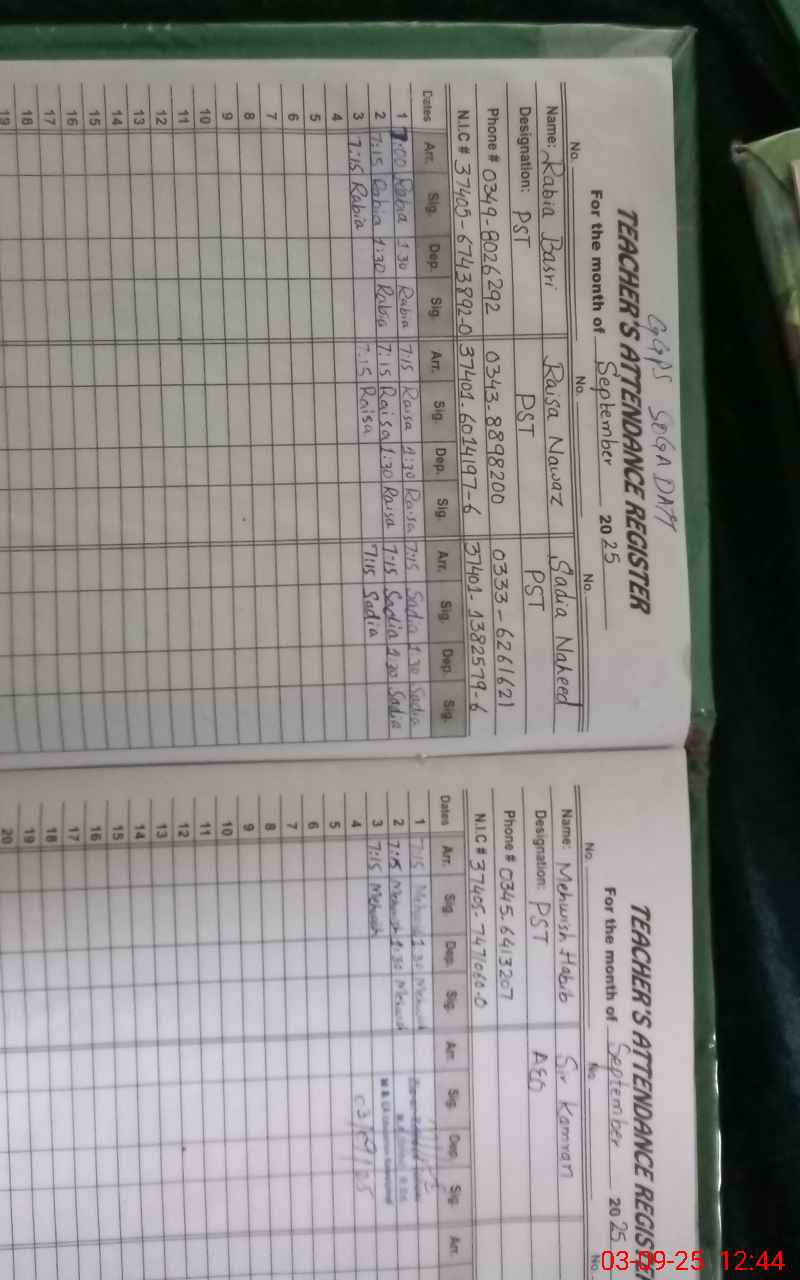 GGPS SOGA DAM
TEACHER'S ATTENDANCE REGISTER
For the month of September 2025
No. No. No.
Name: Rabia Basri Raisa Nawaz Sadia Naheed
Designation: PST PST PST
Phone # 0349-8026292 0343-8898200 0333-6261621
N.I.C # 37405-6743892-0 37401-6014197-6 37401-1382579-6
Dates Arr. Sig. Dep. Sig. Arr. Sig. Dep. Sig. Arr. Sig. Dep. Sig.
1 7:00 Rabia 1:30 Rabia 7:15 Raisa 1:30 Raisa 7:15 Sadia 1:30 Sadia
2 7:15 Rabia 1:30 Rabia 7:15 Raisa 1:30 Raisa 7:15 Sadia 1:30 Sadia
3 7:15 Rabia 7:15 Raisa 7:15 Sadia
4
5
6
7
8
9
10
11
12
13
14
15
16
17
18
19
TEACHER'S ATTENDANCE REGIST
For the month of September 2025
No. No. No
Name: Mehwish Habib Sir Kamran
Designation: PST AEO
Phone # 0345-6413207
N.I.C # 37405-7471060-0
Dates Arr. Sig. Dep. Sig. Arr. Sig. Dep. Sig. Arr.
1 7:15 Mehwish 1:30 Mehwish
2 7:15 Mehwish 1:30 Mehwish
3 7:15 Mehwish
4
5
6
7
8
9
10
11
12
13
14
15
16
17
18
19
20
03-09-25 12:44